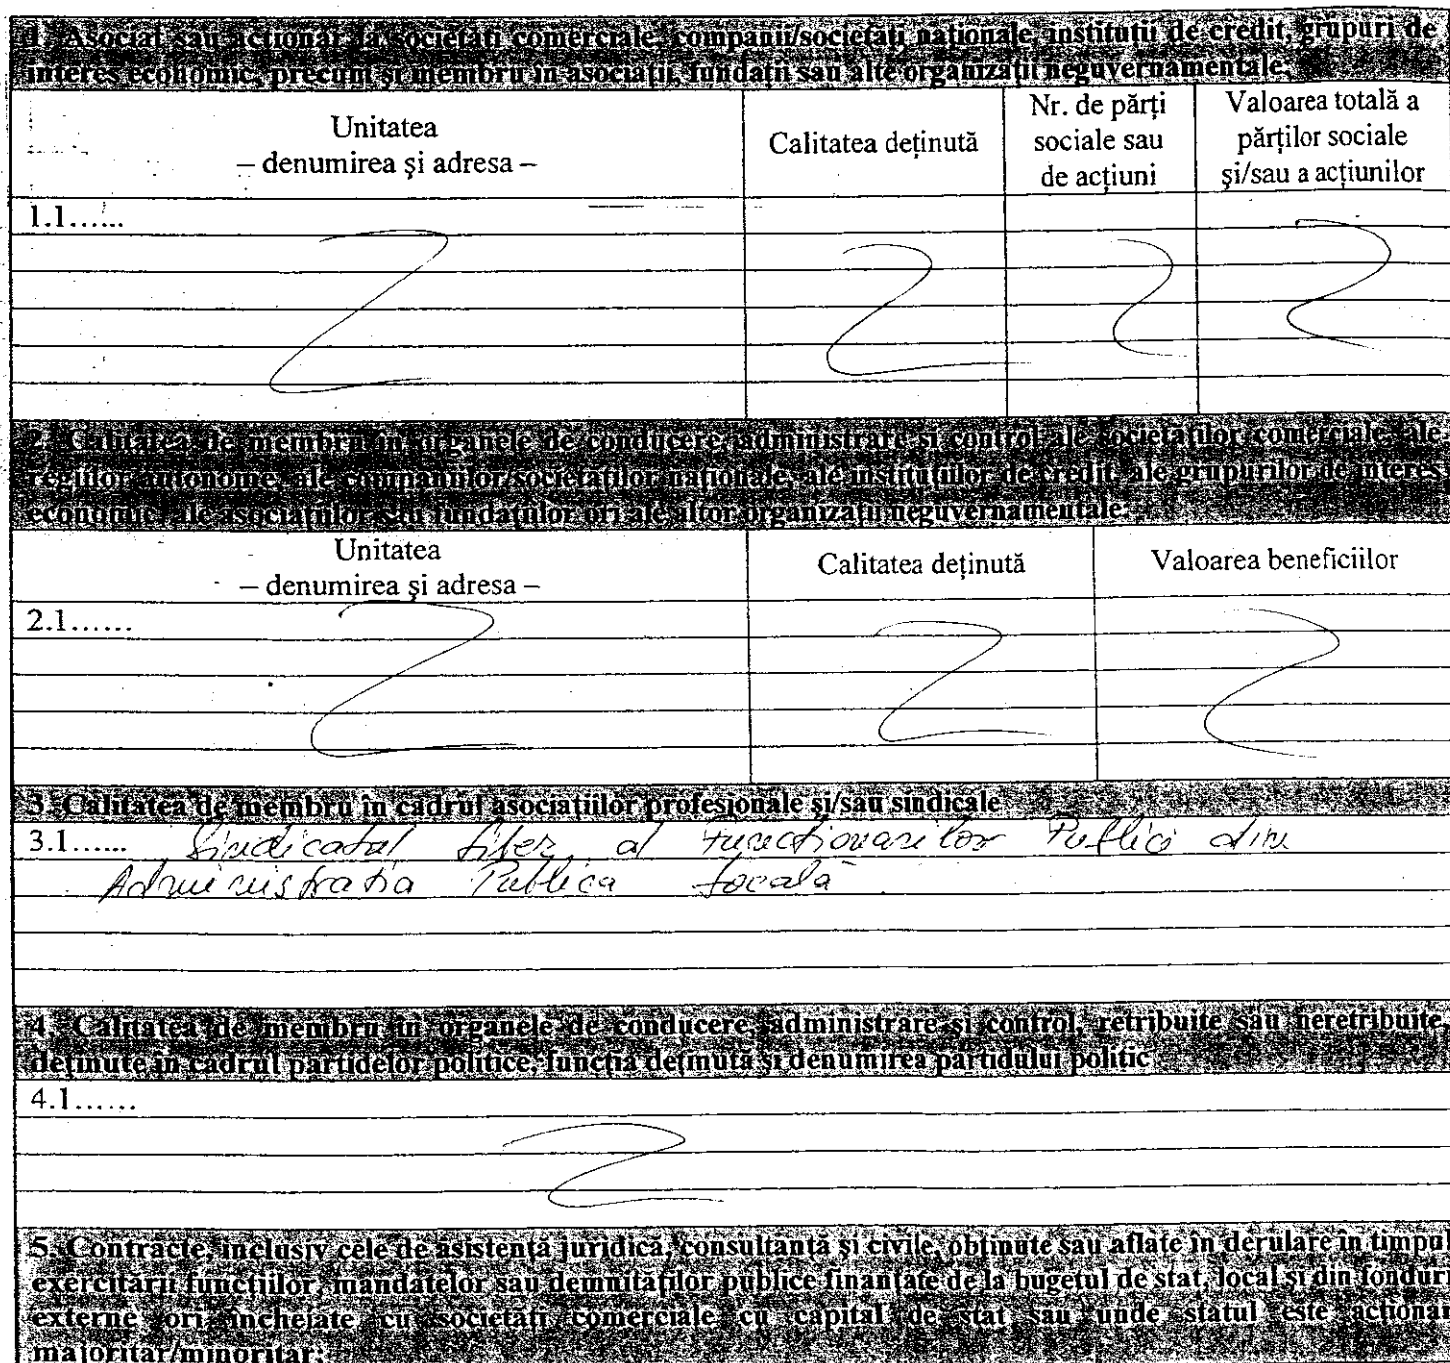 1. Asociat sau acționar la societăți comerciale, companii/societăți naționale, instituții de credit, grupuri de
interes economic, precum și membru în asociații, fundații sau alte organizații neguvernamentale:
Unitatea
– denumirea și adresa –
Calitatea deținută
Nr. de părți
sociale sau
de acțiuni
Valoarea totală a
părților sociale
și/sau a acțiunilor
1.1......
2. Calitatea de membru în organele de conducere, administrare și control ale societăților comerciale, ale
regiilor autonome, ale companiilor/societăților naționale, ale instituțiilor de credit, ale grupurilor de interes
economic, ale asociațiilor sau fundațiilor ori ale altor organizații neguvernamentale:
Unitatea
– denumirea și adresa –
Calitatea deținută
Valoarea beneficiilor
2.1......
3. Calitatea de membru în cadrul asociațiilor profesionale și/sau sindicale
3.1...... Sindicatul Liber al Functionarilor Publici din
Administratia Publica Locală
4. Calitatea de membru în organele de conducere, administrare și control, retribuite sau neretribuite,
deținute în cadrul partidelor politice, funcția deținută și denumirea partidului politic
4.1......
5. Contracte, inclusiv cele de asistență juridică, consultanță și civile, obținute sau aflate în derulare în timpul
exercitării funcțiilor, mandatelor sau demnităților publice finanțate de la bugetul de stat, local și din fonduri
externe ori încheiate cu societăți comerciale cu capital de stat sau unde statul este acționar
majoritar/minoritar: